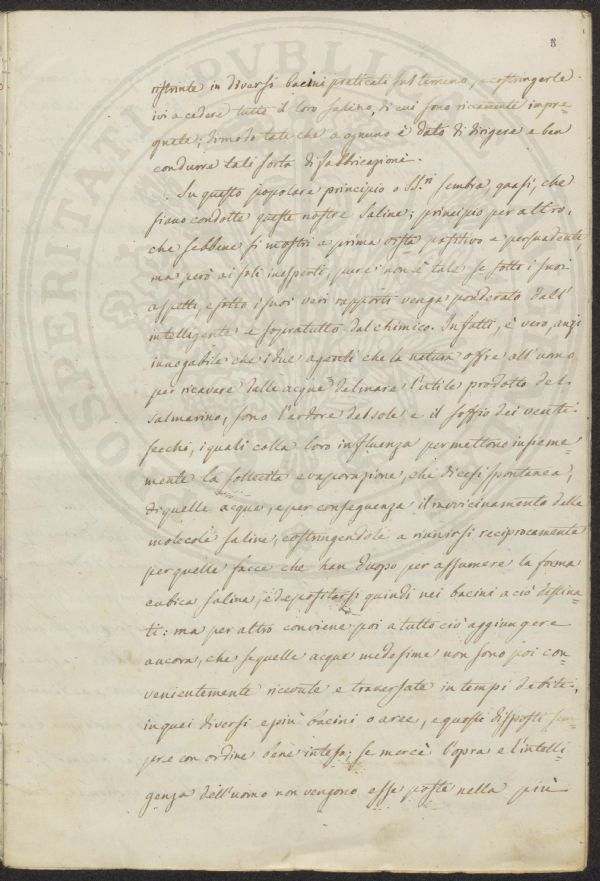 8
ristrinte in diversi bacini praticati sul terreno, e costringerle
ivi a cedere tutto il loro salino, di cui sono riccamente impre=
gnate; dimodo tale che a ognuno è dato di dirigere e ben
condurre tali sorta di fabbricazioni.
Su questo popolare principio o SS.ri sembra, quasi, che
siano condotte queste nostre saline; principio per altro,
che sebbene si mostri a prima vista positivo e persuadente,
ma però ai soli inesperti, pure non è tale se sotto i suoi
aspetti, e sotto i suoi veri rapporti venga ponderato dall'
intelligente e sopratutto dal chimico. Infatti, è vero, anzi
innegabile che i due agenti che la natura offre all'uomo
per ricavare dalle acque del mare l'utile prodotto del
salmarino, sono l'ardore del sole e il soffio dei venti
secchi, i quali colla loro influenza permettono insieme=
mente la sollecita evaporazione, che dicesi spontanea,
di quelle acque, e per conseguenza il ravvicinamento delle
molecole saline, costringendole a riunirsi reciprocamente
per quelle facce che han duopo per assumere la forma
cubica salina, e depositarsi quindi nei bacini a ciò destina=
ti: ma per altro conviene poi a tutto ciò aggiungere
ancora, che se quelle acque medesime non sono poi con=
venientemente riccolte e traversate in tempi debiti,
in quei diversi e più bacini o aree, e questi disposti sem=
pre con ordine bene inteso; se mercè l'opra e l'intelli=
genza dell'uomo non vengono esse poste nella più